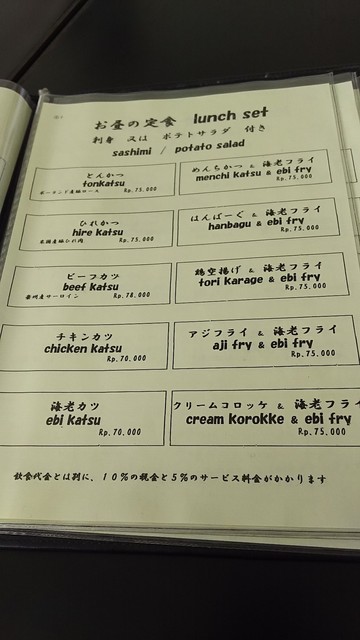 お昼の定食 lunch set
刺身 又は ポテトサラダ 付き
sashimi / potato salad
とんかつ
tonkatsu
ポーランド産豚ロース Rp.75.000
めんちかつ & 海老フライ
menchi katsu & ebi fry
Rp.75.000
ひれかつ
hire katsu
米国産豚ひれ肉 Rp.75.000
はんばーぐ & 海老フライ
hanbagu & ebi fry
Rp.75.000
ビーフカツ
beef katsu
豪州産サーロイン Rp.78.000
鶏空揚げ & 海老フライ
tori karage & ebi fry
Rp.75.000
チキンカツ
chicken katsu
Rp.70.000
アジフライ & 海老フライ
aji fry & ebi fry
Rp.75.000
海老カツ
ebi katsu
Rp.70.000
クリームコロッケ & 海老フライ
cream korokke & ebi fry
Rp.75.000
飲食代金とは別に、10%の税金と5%のサービス料金がかかります